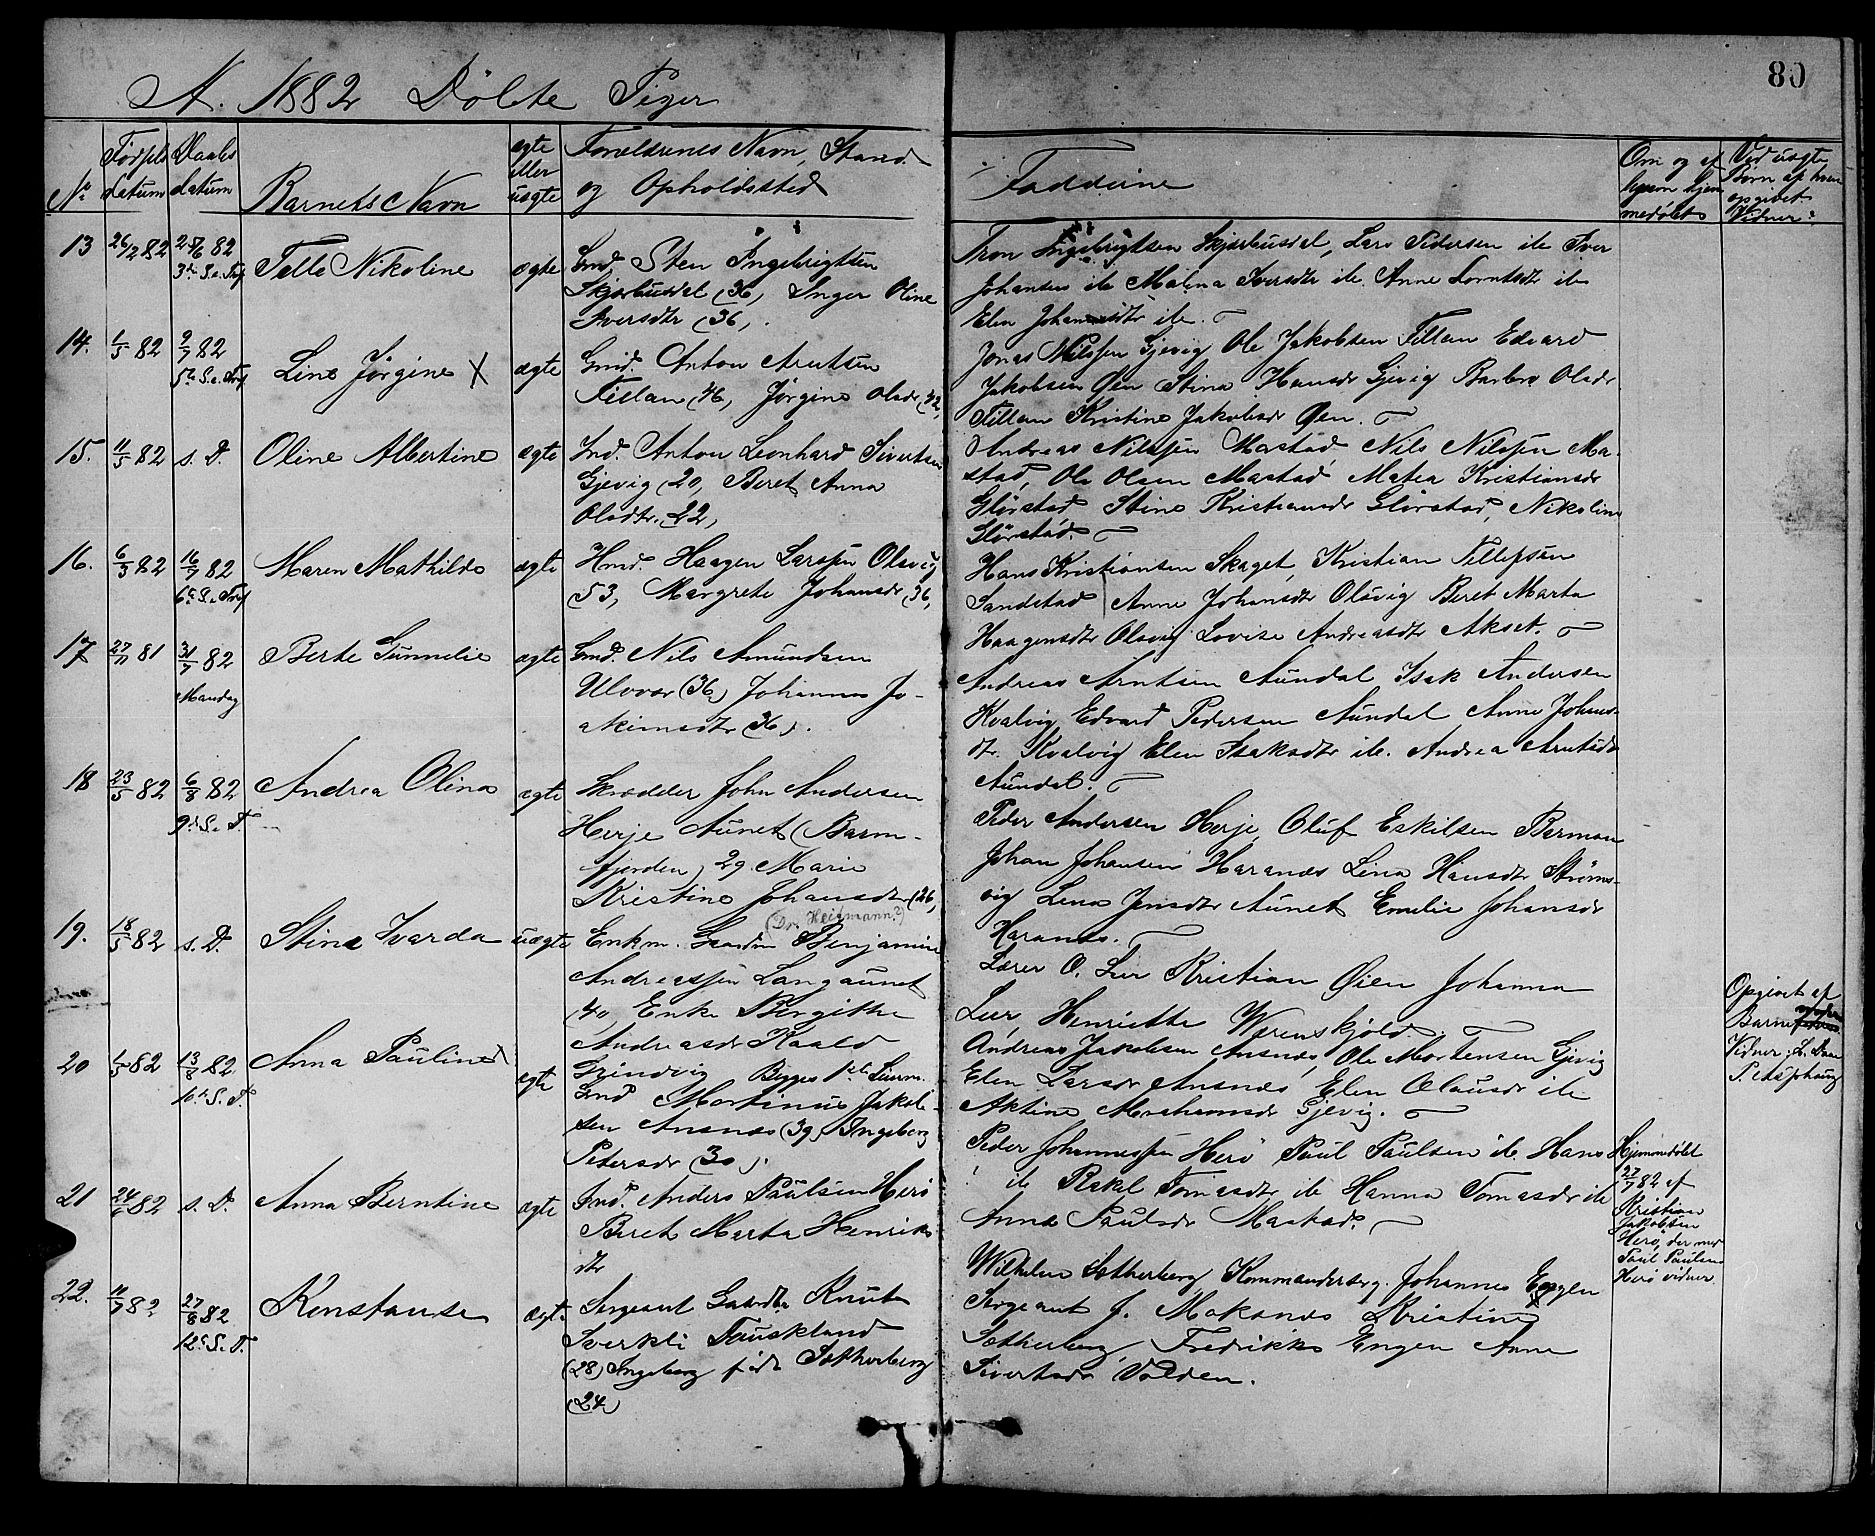 A. 1882 Döbte Piger
80
No
Fødsels datum
Daabs datum
Barnets Navn
ægte eller uægte
Forældrenes Navn, Stand
og Opholdssted
Fadderne
Om og af hvem hjemmedøbt
Ved uægte Børn af hvem opgivet Vidner:
13 26/2 82 25/6 82 3die S.e. Tref
Telle Nikoline
ægte
Gmd. Sten Ingebrigtsen
Skjærbusdal (36, Inger Oline
Iversdtr (36,
Tron Ingebrigtsen Skjærbusdal, Lars Pedersen ib Iver
Johansen ib Malena Iversdtr ib. Anne Lorntsdtr ib
Elen Johansdtr ib.
14. 1/5 82 9/7 82 5te S.e. Tref
Line Jørgine X
ægte
Gmd. Anton Arntsen
Tillan (46, Jørgine Olsdr (42,
Jonas Nilssen Gjevig Ole Jakobsen Tillan Edvard
Jakobsen Øen Stina Hansdr Gjevig Barbro Olsdr
Tillan Kristine Jakobsdr Øen.
15. 11/5 82 s. D.
Oline Albertine
ægte
Ind. Anton Leonhard Sivertsen
Gjevig (20, Beret Anna
Olsdtr. 22,
Andreas Nilssen Mastad, Nils Nilssen Ma-
stad, Ole Olsen Mastad Matea Kristiansdr
Glørstad, Stine Kristiansdr Glørstad, Nikoline
Glørstad.
16. 6/3 82 16/7 82 6te S.e. Tref
Maren Mathilde
ægte
Hmd. Haagen Larssen Olsvig
(53, Margrete Johansdr (36,
Hans Kristiansen Skaget, Kristian Tillefsen
Sandstad Anne Johansdtr Olsvig Beret Marta
Haagensdtr Olsvig Lovise Andreasdtr Akset.
17 27/11 81 31/7 82 Mandag
Berte Gunnelie
ægte
Gmd. Nils Amundsen
Ulvvær (36) Johanna Jo-
akimsdtr (36).
Andreas Arntsen Aundal Isak Andersen
Kvalvig Edvard Pedersen Aundal Anne Johans-
dtr. Kvalvig Elen Isaksdtr ib. Andrea Arntsdr
Aundal.
18 23/5 82 6/8 82 9de S.e. T.
Andrea Olina
ægte
Skrædder John Andersen
Herje Aunet (Barm-
fjorden) 29 Marie
Kristine Johansdtr (26,
Peder Andersen Herje, Oluf Eskilsen Barman
Johan Johansen Haranes Lina Hansdtr Strøms-
vig Lina Jensdtr Aunet Emelie Johansdr
Haranes.
19. 18/5 82 s. D.
Stina Ivarda
uægte
(Dr. Heitmann?)
Enkm. Gaardm Benjamin
Andreassen Langaunet
(40, Enke Birgithe
Andreasdr Kaald
Grindvig Begges
Lærer O. Lier Kristian Øien Johanna
Lier, Henriette Werenskjold.
Opgivet af
Barnemoderen
Vidner: L. Daa
20 1/5 82 13/8 82 10de S.e. T.
Anna Pauline
ægte
Gmd Martinus Jakob-
sen Ansnæs (39, Ingeborg
Pedersdr (30).
Andreas Jakobsen Ansnæs, Ole Mortensen Gjevig
Elen Larsdr Ansnæs Elen Olausdr ib
Aktine Abrahamsdr Gjevig.
21 24/6 82 s. D.
Anna Berntine
ægte
Ind. Anders Paulsen Herø
Beret Marta Henriks
dtr
Peder Johannessen Herø Paul Paulsen ib. Hans
ib Rakel Tomasdtr ib Hanna Tomasdr ib
Anna Paulsdr Mastad.
Hjemmedøbt
27/7 82 af
Kristian
Jakobsen
Herø, der med
Paul Paulsen
Herø vidner.
22. 11/7 82 27/8 82 12te S.e. T.
Konstanse
ægte
Sergeant Gaardbr Knut
Sverkli Fauskland
(28) Ingeborg født Sotherberg
(24)
Wilhelm Sotherberg Kommandersrg. Johannes Engen
Sergeant J. Moksnes Kristine
Sotherberg, Fredrikke Engen Anne
Sivertsdr Volden.